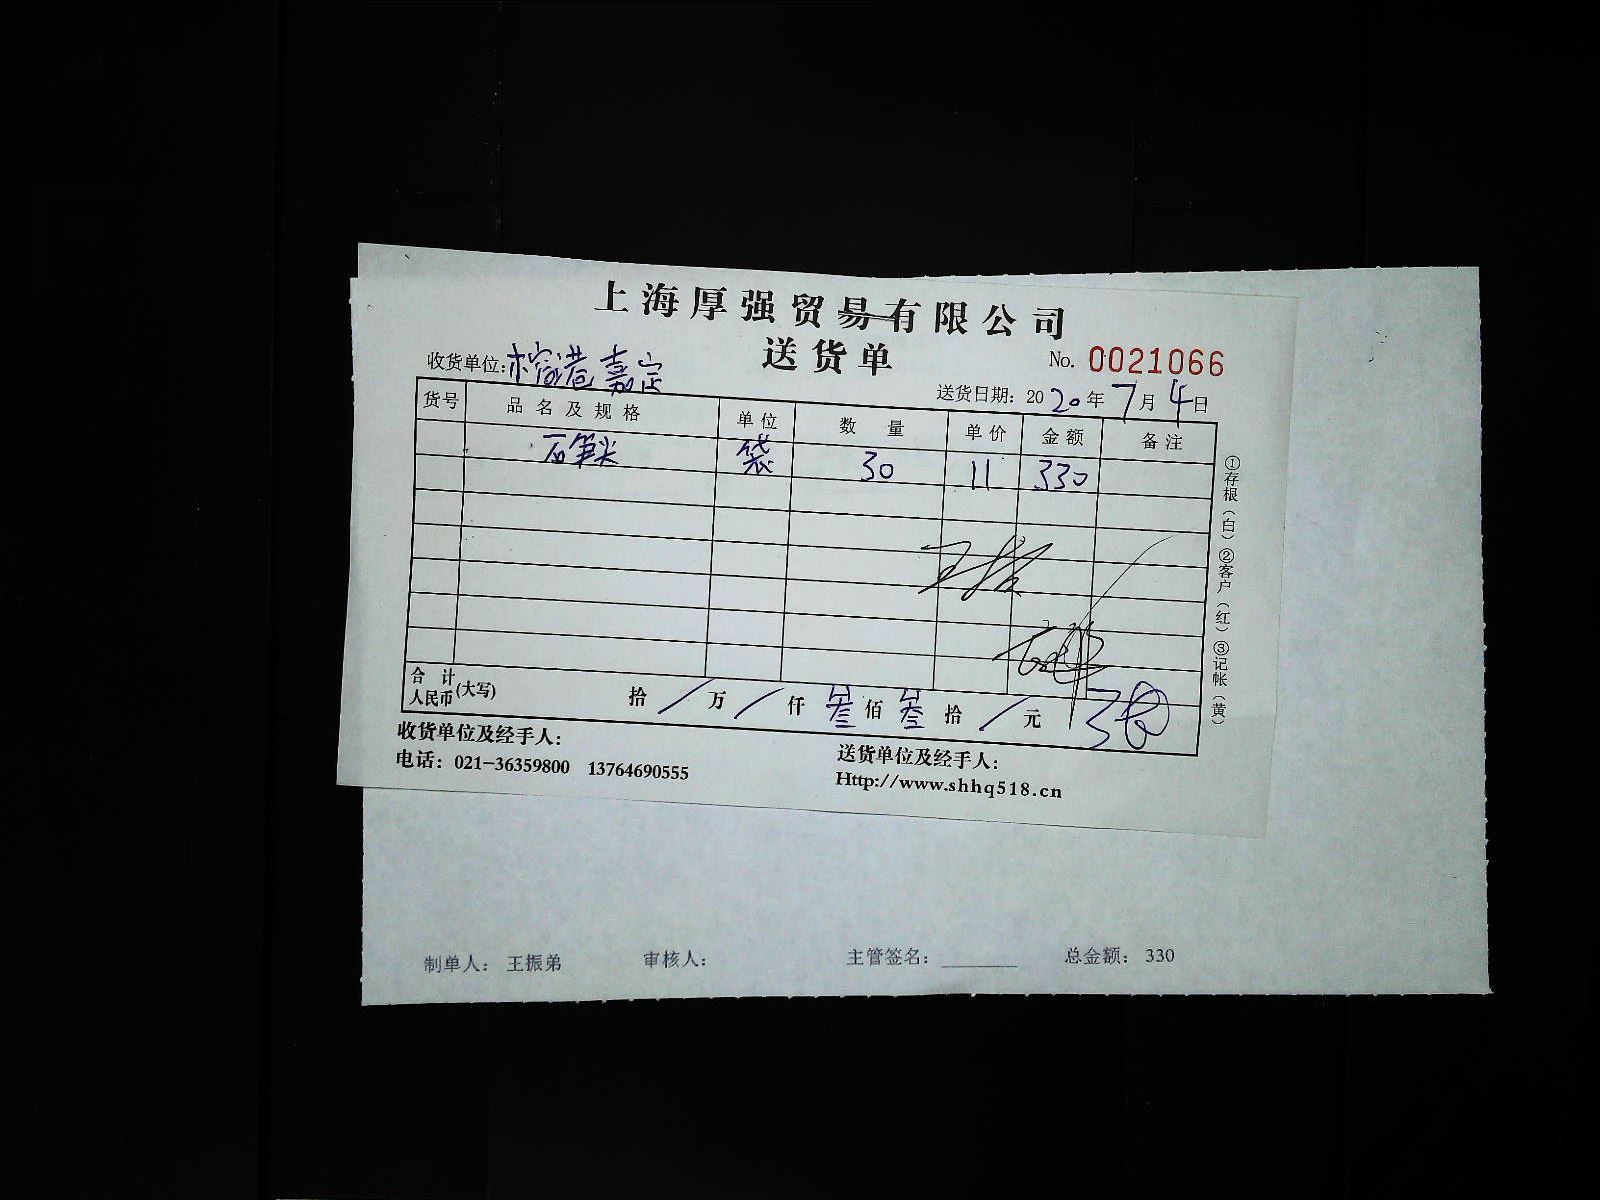 上海厚强贸易有限公司
送货单
No. 0021066
收货单位:榕港嘉定
送货日期: 2020年7月4日
货号 品名及规格 单位 数量 单价 金额 备注
石笋尖 袋 30 11 330
合计人民币(大写) 拾/万/仟叁佰叁拾/元
①存根(白)②客户(红)③记帐(黄)
收货单位及经手人:
送货单位及经手人:
电话: 021-36359800 13764690555
Http://www.shhq518.cn
制单人: 王振弟 审核人: 主管签名: ________ 总金额: 330